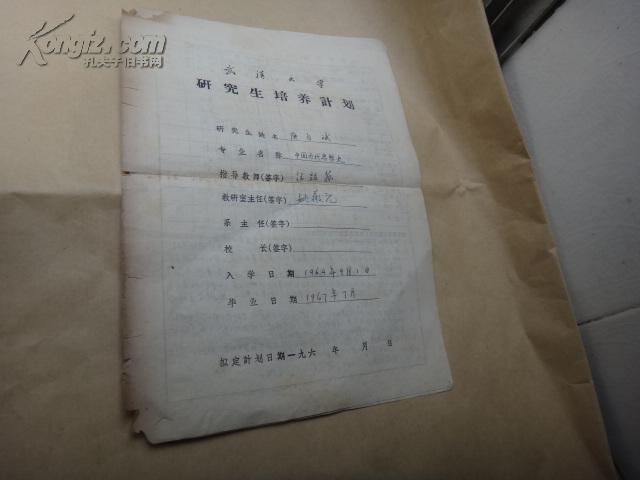 Kongfz.com
孔夫子旧书网
武汉大学
研究生培养計划
研究生姓名
专业名称 中国古代思想史
指导教师(签字)
教研室主任(签字) 姚薇元
系主任(签字)
校长(签字)
入学日期 1964年9月1日
毕业日期 1967年7月
拟定計划日期一九六 年 月 日